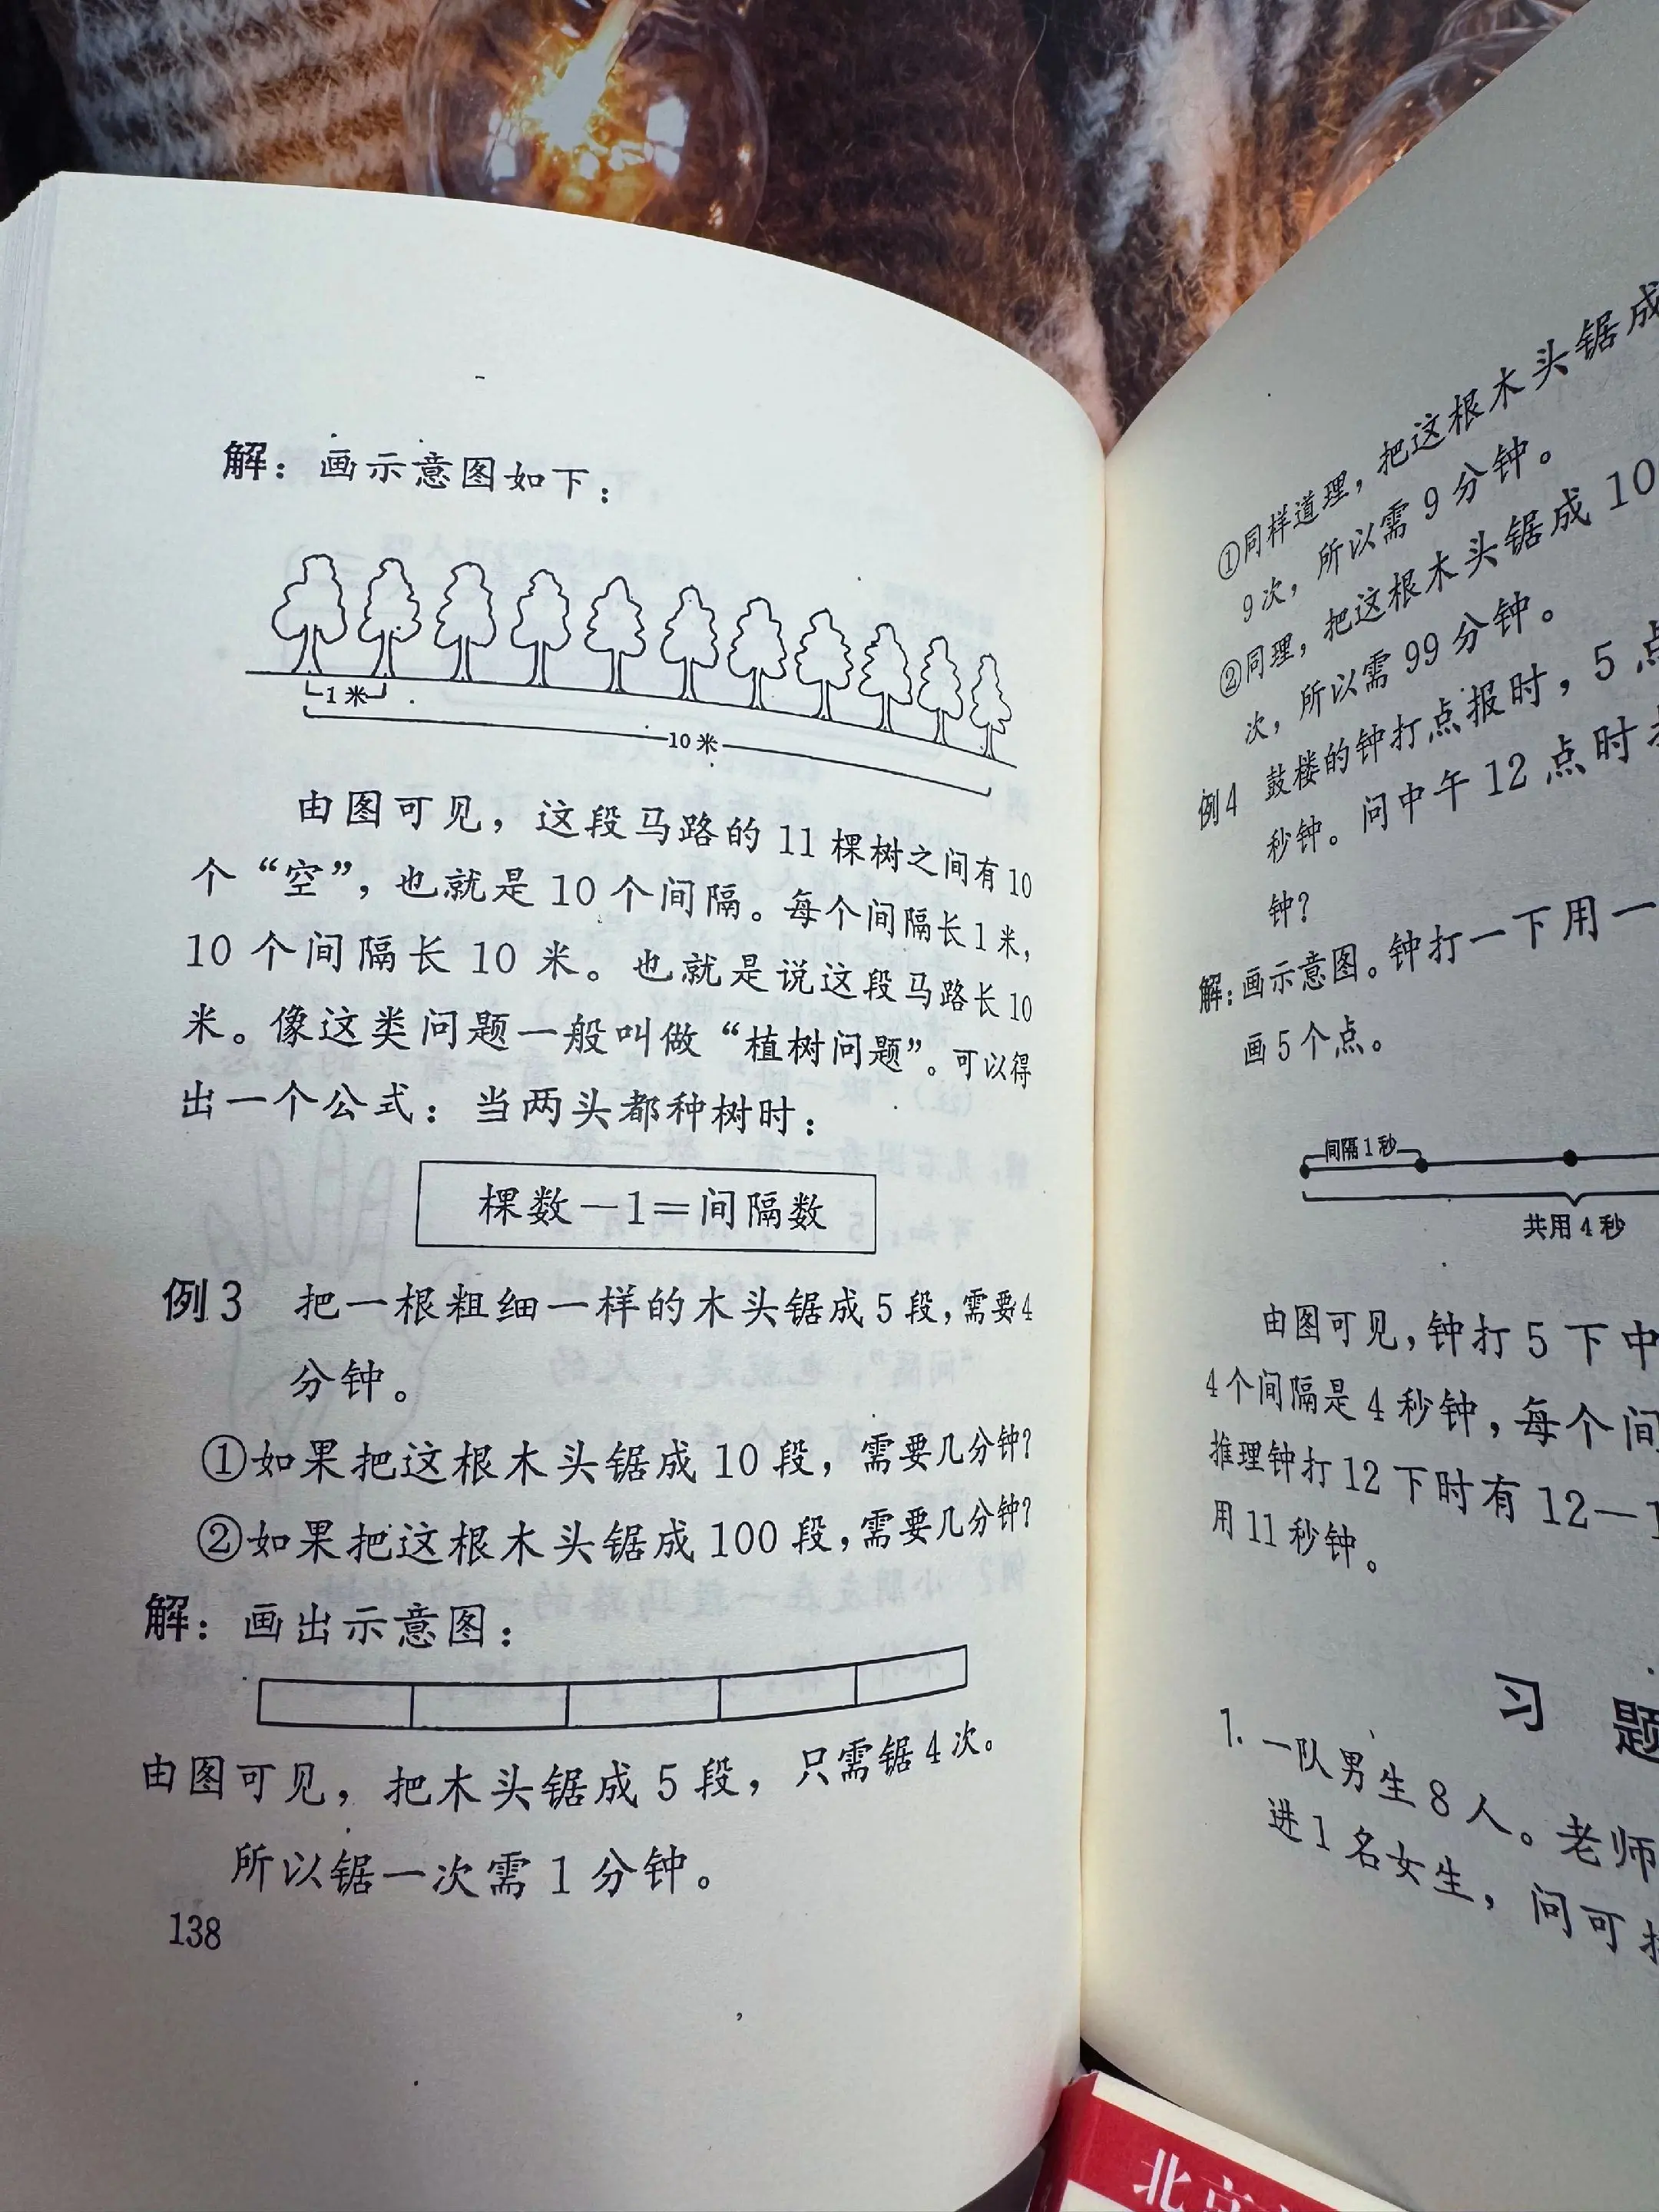 解：画示意图如下：
1米
10米
由图可见，这段马路的 11 棵树之间有 10
个“空”，也就是 10 个间隔。每个间隔长 1 米，
10 个间隔长 10 米。也就是说这段马路长 10
米。像这类问题一般叫做“植树问题”。可以得
出一个公式：当两头都种树时：
棵数－1＝间隔数
例3 把一根粗细一样的木头锯成 5 段，需要 4
分钟。
①如果把这根木头锯成 10 段，需要几分钟？
②如果把这根木头锯成 100 段，需要几分钟？
解：画出示意图：
由图可见，把木头锯成 5 段，只需锯 4 次。
所以锯一次需 1 分钟。
138
①同样道理，把这根木头锯成
9次，所以需 9 分钟。
②同理，把这根木头锯成 10
次，所以需 99 分钟。
例4 鼓楼的钟打点报时，5 点
秒钟。问中午 12 点时
钟？
解：画示意图。钟打一下用一
画 5 个点。
间隔 1 秒
共用 4 秒
由图可见，钟打 5 下中
4 个间隔是 4 秒钟，每个间
推理钟打 12 下时有 12－1
用 11 秒钟。
习 题
1. 一队男生 8 人。老师
进 1 名女生，问可
北京